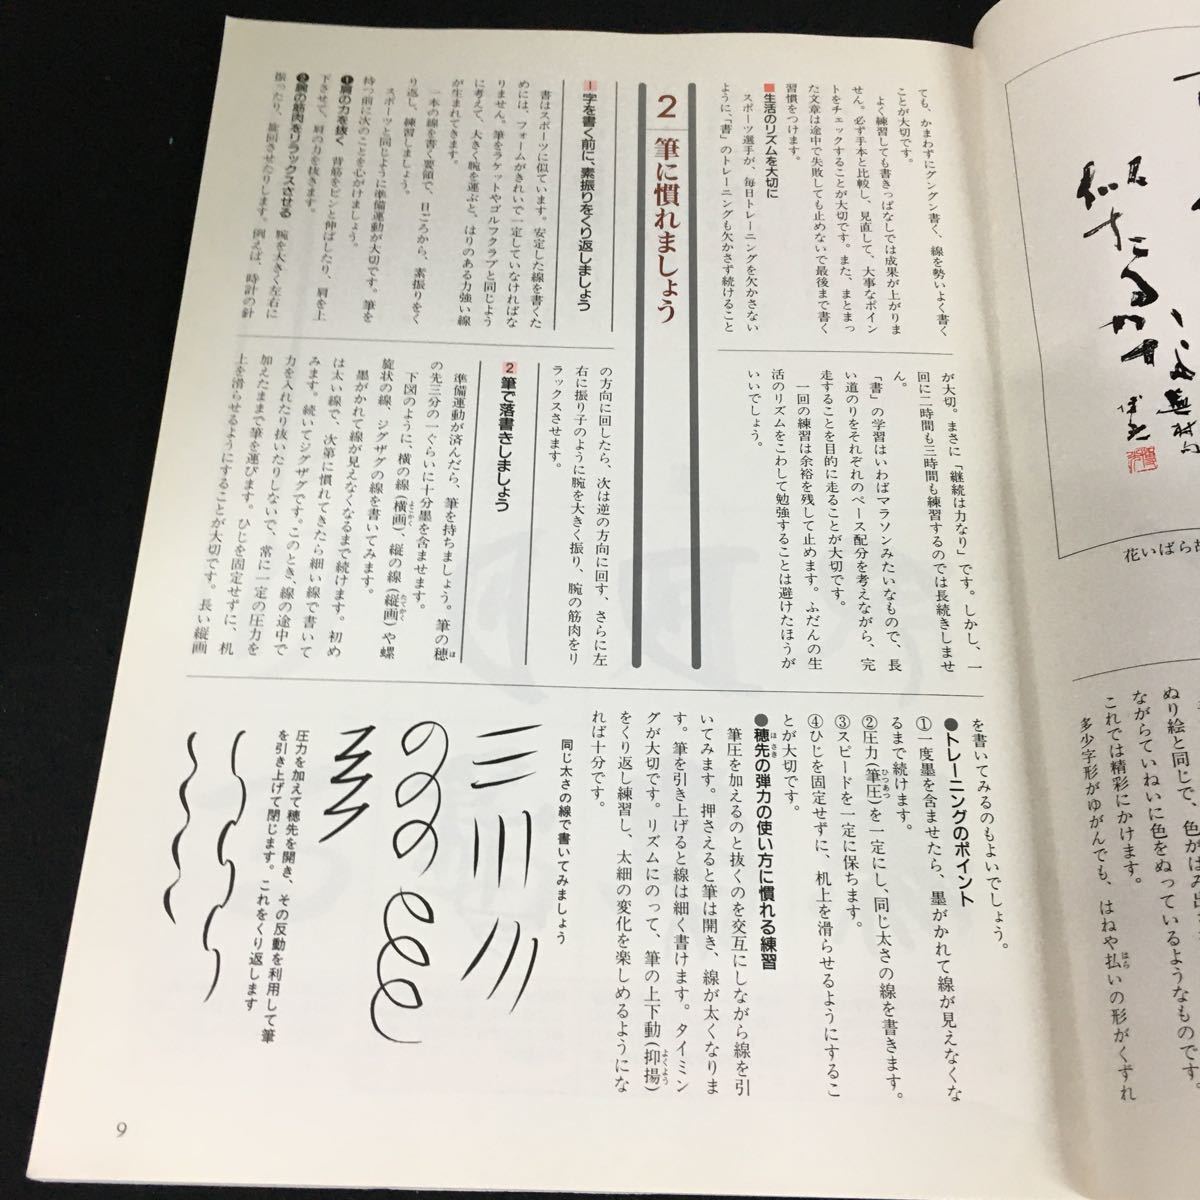 ても、かまわずにグングン書く、線を勢いよく書く
ことが大切です。
よく練習しても書きっぱなしでは成果が上がりま
せん。必ず手本と比較し、見直して、大事なポイン
トをチェックすることが大切です。また、まとまっ
た文章は途中で失敗しても止めないで最後まで書く
習慣をつけます。
■生活のリズムを大切に
スポーツ選手が、毎日トレーニングを欠かさない
ように、「書」のトレーニングも欠かさず続けること
が大切。まさに「継続は力なり」です。しかし、一
回に二時間も三時間も練習するのでは長続きしませ
ん。
「書」の学習はいわばマラソンみたいなもので、長
い道のりをそれぞれのペース配分を考えながら、完
走することを目的に走ることが大切です。
一回の練習は余裕を残して止めます。ふだんの生
活のリズムをこわして勉強することは避けたほうが
いいでしょう。
2 筆に慣れましょう
1 字を書く前に、素振りをくり返しましょう
書はスポーツに似ています。安定した線を書くた
めには、フォームがきれいで一定していなければな
りません。筆をラケットやゴルフクラブと同じよう
に考えて、大きく腕を運ぶと、はりのある力強い線
が生まれてきます。
一本の線を書く要領で、日ごろから、素振りをく
り返し、練習しましょう。
スポーツと同じように準備運動が大切です。筆を
持つ前に次のことを心がけましょう。
❶肩の力を抜く 背筋をピンと伸ばしたり、肩を上
下させて、肩の力を抜きます。
❷腕の筋肉をリラックスさせる 腕を大きく左右に
振ったり、旋回させたりします。例えば、時計の針
の方向に回したら、次は逆の方向に回す、さらに左
右に振り子のように腕を大きく振り、腕の筋肉をリ
ラックスさせます。
2 筆で落書きしましょう
準備運動が済んだら、筆を持ちましょう。筆の穂
ほ
の先三分の一ぐらいに十分墨を含ませます。
下図のように、横の線(横画)、縦の線(縦画)や螺
よこかく たてかく
旋状の線、ジグザグの線を書いてみます。
墨がかれて線が見えなくなるまで続けます。初め
は太い線で、次第に慣れてきたら細い線で書いて
みます。続いてジグザグです。このとき、線の途中で
力を入れたり抜いたりしないで、常に一定の圧力を
加えたままで筆を運びます。ひじを固定せずに、机
上を滑らせるようにすることが大切です。長い縦画
を書いてみるのもよいでしょう。
●トレーニングのポイント
①一度墨を含ませたら、墨がかれて線が見えなくな
るまで続けます。
②圧力(筆圧)を一定にし、同じ太さの線を書きます。
ひつあつ
③スピードを一定に保ちます。
④ひじを固定せずに、机上を滑らせるようにするこ
とが大切です。
●穂先の弾力の使い方に慣れる練習
ほさき
筆圧を加えるのと抜くのを交互にしながら線を引
いてみます。押さえると筆は開き、線が太くなりま
す。筆を引き上げると線は細く書けます。タイミン
グが大切です。リズムにのって、筆の上下動(抑揚)
よくよう
をくり返し練習し、太細の変化を楽しめるようにな
れば十分です。
同じ太さの線で書いてみましょう
圧力を加えて穂先を開き、その反動を利用して筆
を引き上げて閉じます。これをくり返します
9
花いばら故
ぬり絵と同じで、色がはみ出
ながらていねいに色をぬっているようなものです。
これでは精彩にかけます。
多少字形がゆがんでも、はねや払いの形がくずれ
はら